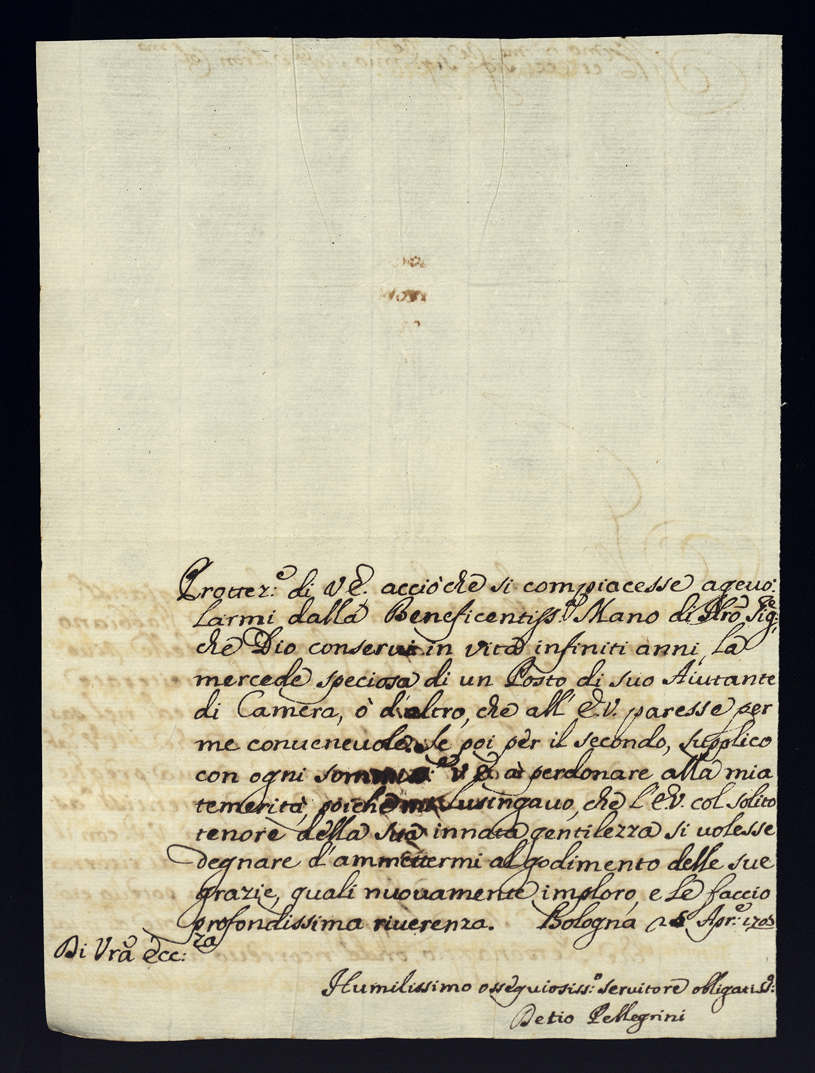 Protter.e di V E. acciòche si compiacesse ageuo:
larmi dalla Beneficentiss.a Mano di Nro Sig.re
che Dio conserui in vita infiniti anni, la
mercede speciosa di un Posto di suo Aiutante
di Camera, ò d'altro, che all' E.V. paresse per
me conueneuole. Se poi per il secondo, supplico
con ogni V E à perdonare alla mia
temerità, poiche mi lusingauo, che l'E.V. col solito
tenore della sua innata gentilezza si volesse
degnare d'ammettermi al godimento delle sue
grazie, quali nuouamente imploro, e le faccio
profondissima riuerenza. Bologna Apr.e 1705
Di Vra Ecc:za
Humilissimo ossequiosiss:o seruitore
Petio Pellegrini